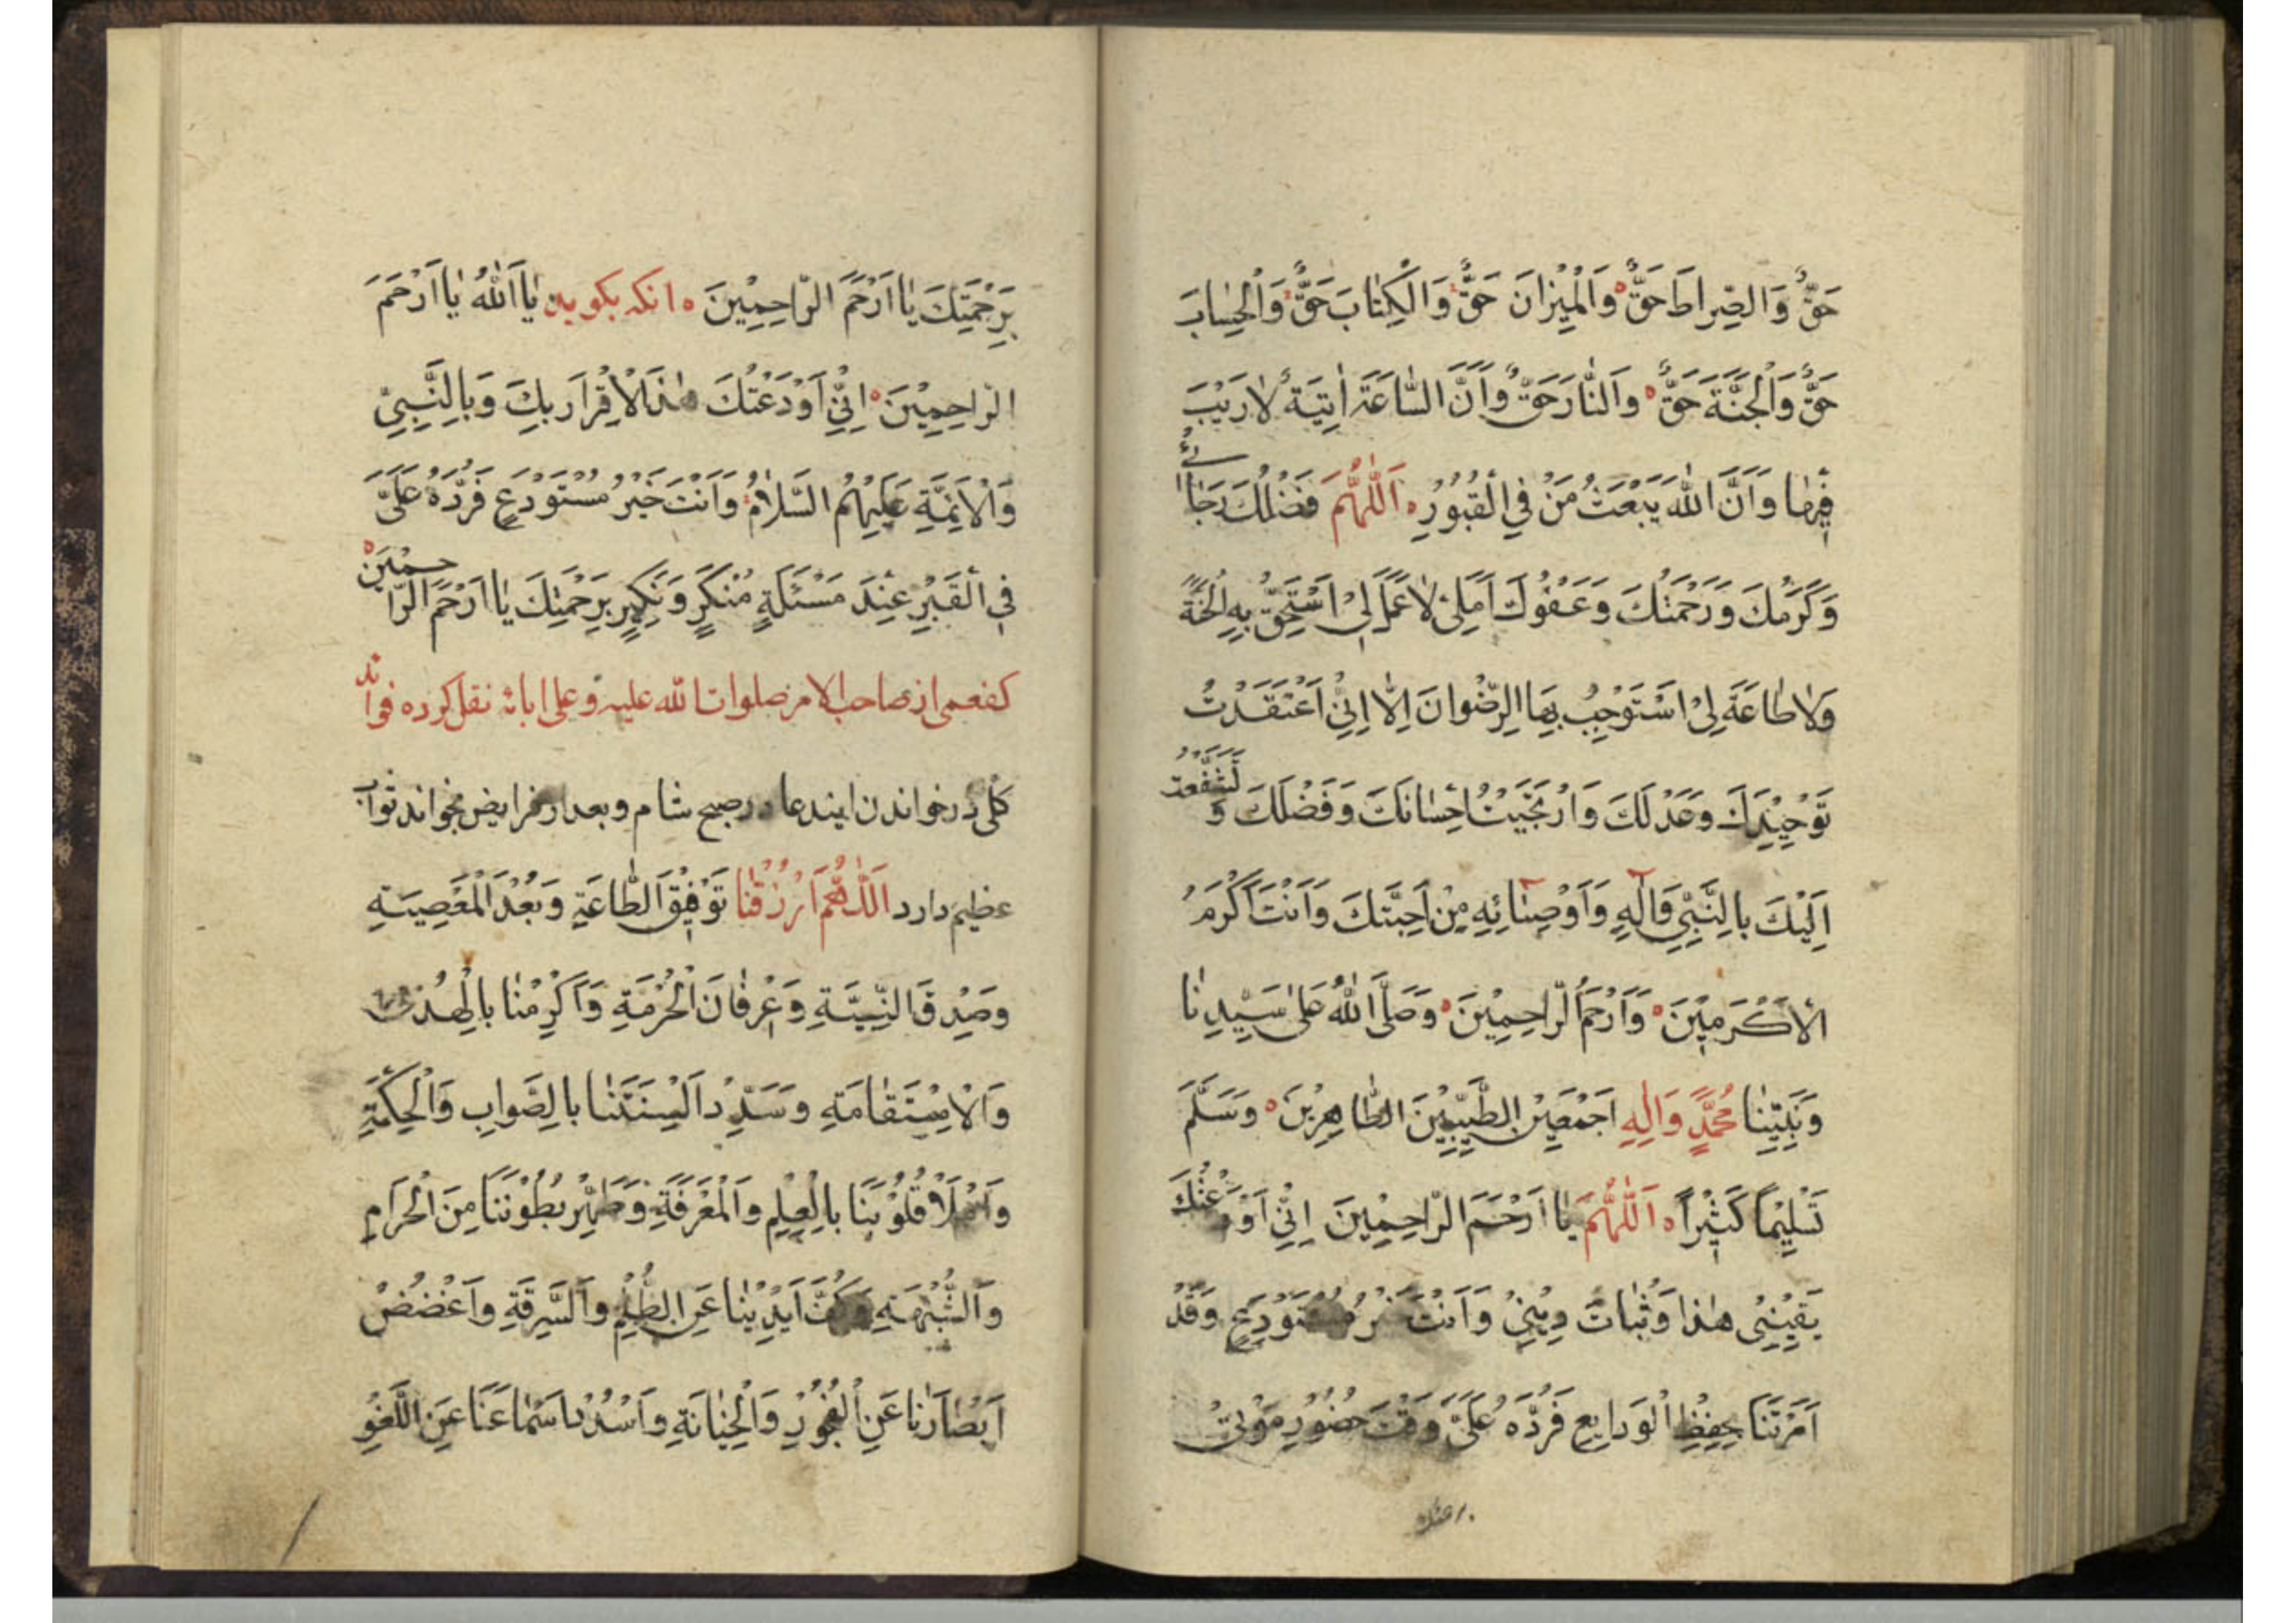 حَقٌّ وَالصِّراطَ حَقٌّ وَالْمِيْزانَ حَقٌّ وَالْكِتٰابَ حَقٌّ وَالْحِسٰابَ
حَقٌّ وَالْجَنَّةَ حَقٌّ وَالنّٰارَ حَقٌّ وَاَنَّ السّٰاعَةَ اٰتِيَةٌ لٰا رَيْبَ
فِيْهٰا وَاَنَّ اللهَ يَبْعَثُ مَنْ فِي الْقُبُوْرِ اَللّٰهُمَّ فَضْلُكَ رَجٰائِيْ
وَكَرَمُكَ وَرَحْمَتُكَ وَعَفْوُكَ اَمَلِيْ لٰا عَمَلَ لِيْ اَسْتَحِقُّ بِهِ الْجَنَّةَ
وَلٰا طٰاعَةَ لِيْ اَسْتَوْجِبُ بِهَا الرِّضْوانَ اِلّٰا اِنِّيْ اَعْتَقَدْتُ
تَوْحِيْدَكَ وَعَدْلَكَ وَارْتَجَيْتُ اِحْسٰانَكَ وَفَضْلَكَ وَ تَشَفَّعْتُ
اِلَيْكَ بِالنَّبِيِّ وَآلِهِ وَاَوْصِيٰائِهِ مِنْ اَحِبَّتِكَ وَاَنْتَ اَكْرَمُ
الْاَكْرَمِيْنَ وَاَرْحَمُ الرّاحِمِيْنَ وَصَلَّى اللهُ عَلىٰ سَيِّدِنٰا
وَنَبِيِّنٰا مُحَمَّدٍ وَاٰلِهِ اَجْمَعِيْنَ الطَّيِّبِيْنَ الطّٰاهِرِيْنَ وَسَلَّمَ
تَسْلِيْمًا كَثِيْرًا اَللّٰهُمَّ يٰا اَرْحَمَ الرّاحِمِيْنَ اِنِّيْ اَوْدَعْتُكَ
يَقِيْنِيْ هٰذا وَثَبٰاتَ دِيْنِيْ وَاَنْتَ خَيْرُ مُسْتَوْدَعٍ وَقَدْ
اَمَرْتَنَا بِحِفْظِ الْوَدايِعِ فَرُدَّهُ عَلَيَّ وَقْتَ حُضُوْرِ مَوْتِيْ
بِرَحْمَتِكَ يٰا اَرْحَمَ الرّاحِمِيْنَ انكه بكويد يٰا اَللهُ يٰا اَرْحَمَ
الرّاحِمِيْنَ اِنِّيْ اَوْدَعْتُكَ هٰذَا الْاِقْرارَ بِكَ وَبِالنَّبِيِّ
وَالْاَئِمَّةِ عَلَيْهِمُ السَّلٰامُ وَاَنْتَ خَيْرُ مُسْتَوْدَعٍ فَرُدَّهُ عَلَيَّ
فِي الْقَبْرِ عِنْدَ مَسْئَلَةِ مُنْكَرٍ وَنَكِيْرٍ بِرَحْمَتِكَ يٰا اَرْحَمَ الرّاحِمِيْنَ
كفعمى از صاحب الامر صلوات الله عليه وعلى ابائه نقل كرده فوايد
كلى در خواندن ايندعا در صبح شام و بعد از فرايض بخواند ثواب
عظيم دارد اَللّٰهُمَّ ارْزُقْنٰا تَوْفِيْقَ الطّٰاعَةِ وَبُعْدَ الْمَعْصِيَةِ
وَصِدْقَ النِّيَّةِ وَعِرْفٰانَ الْحُرْمَةِ وَاَكْرِمْنٰا بِالْهُدىٰ
وَالْاِسْتِقٰامَةِ وَسَدِّدْ اَلْسِنَتَنٰا بِالصَّوابِ وَالْحِكْمَةِ
وَامْلَأْ قُلُوْبَنَا بِالْعِلْمِ وَالْمَعْرِفَةِ وَطَهِّرْ بُطُوْنَنَا مِنَ الْحَرَامِ
وَالشُّبْهَةِ وَكُفَّ اَيْدِيْنٰا عَنِ الظُّلْمِ وَالسَّرِقَةِ وَاغْضُضْ
اَبْصٰارَنٰا عَنِ الْفُجُوْرِ وَالْخِيٰانَةِ وَاسْدُدْ اَسْمٰاعَنَا عَنِ اللَّغْوِ